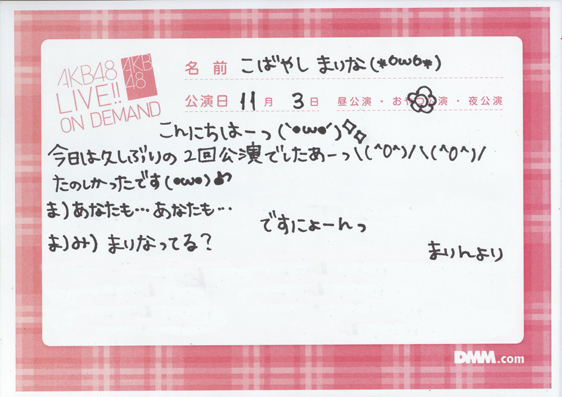 AKB48
LIVE!!
ON DEMAND
AKB
48
名前 こばやし まりな(*òωó*)
公演日 11月 3日 昼公演・おやつ公演・夜公演
こんにちはーっ(`•ω•´)
今日は久しぶりの2回公演でしたあーっ\(^O^)/\(^O^)/
たのしかったです(•ω•)
ま)あなたも…あなたも…
ですにょーんっ
ま)み) まりなってる?
まりんより
DMM.com